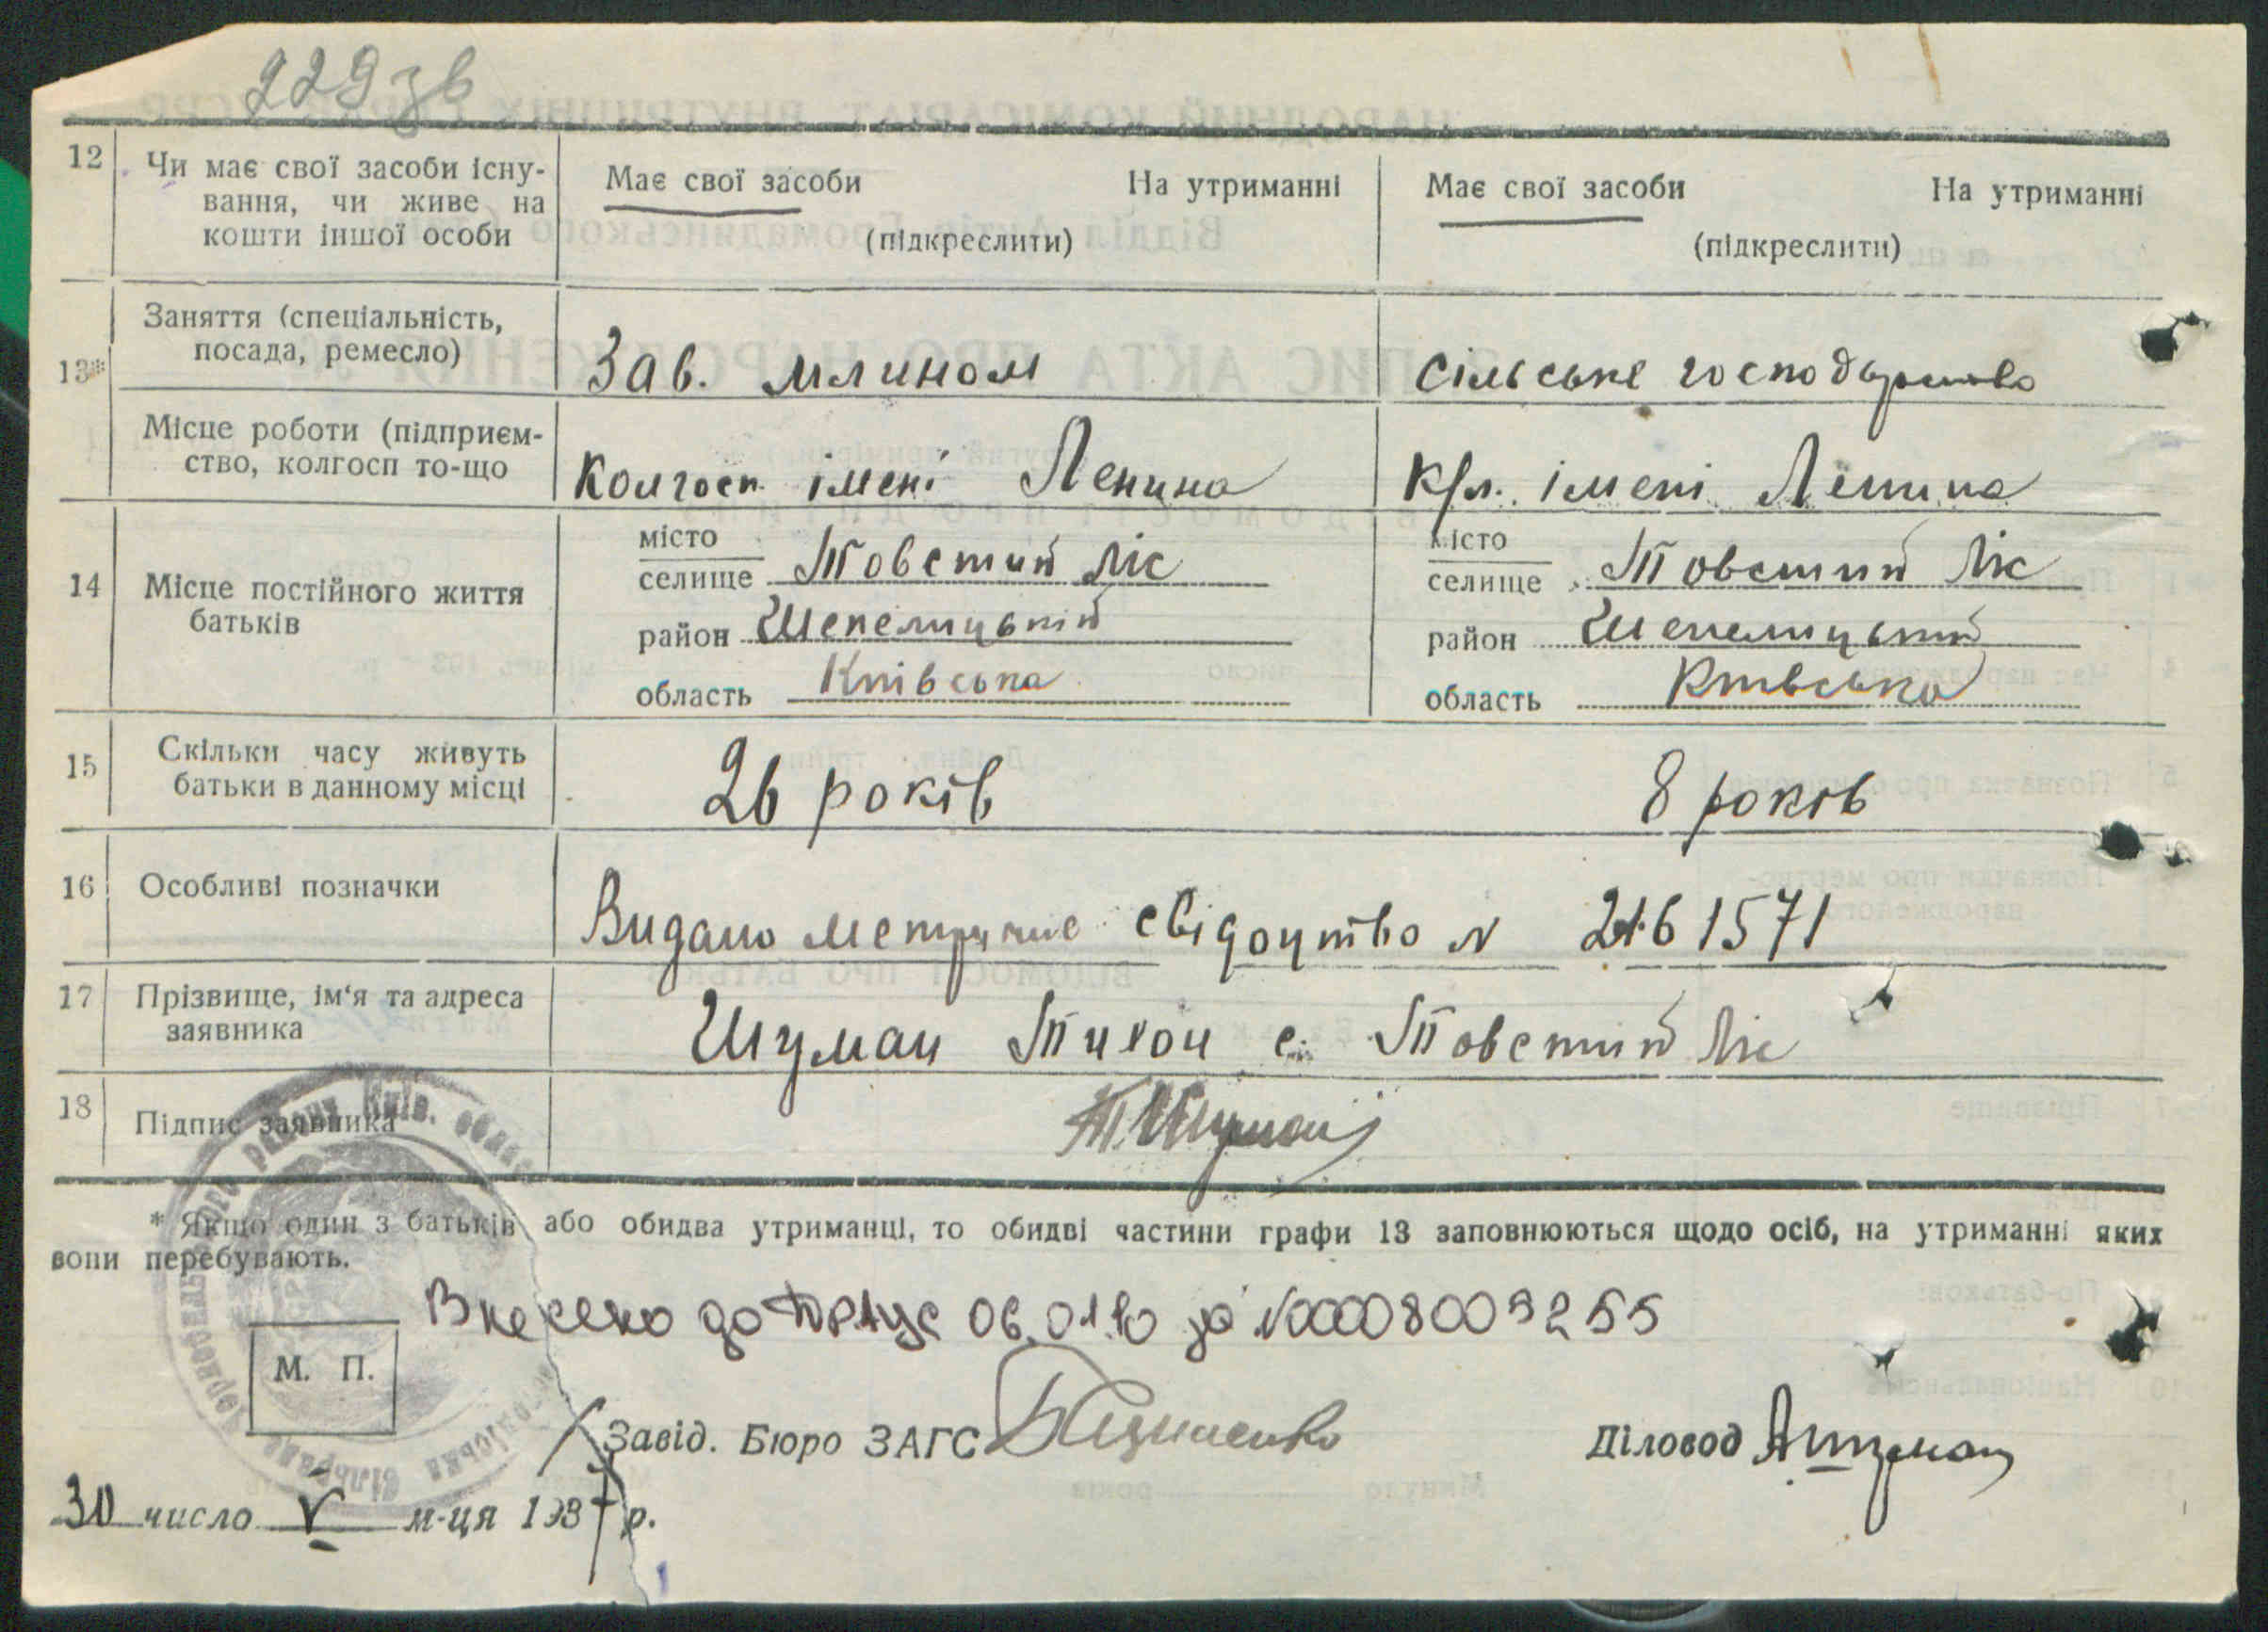 229 зв
12 Чи має свої засоби існу-
вання, чи живе на
кошти іншої особи
Має свої засоби На утриманні
(підкреслити)
Має свої засоби На утриманні
(підкреслити)
13*
Заняття (спеціальність,
посада, ремесло)
Зав. млином
Сільське господарство
Місце роботи (підприєм-
ство, колгосп то-що
Колгосп імені Ленина
К/г. імені Леніна
14 Місце постійного життя
батьків
місто
селище Товстий Ліс
район Шепелицький
область Київська
місто
селище Товстий Ліс
район Шепелицький
область Київська
15 Скільки часу живуть
батьки в данному місці
26 років
8 років
16 Особливі позначки
Видано метричне свідоцтво N 2161571
17 Прізвище, ім‘я та адреса
заявника
Шуман Тихон с. Товстий Ліс
18 Підпис заявника
Т. Шуман
* Якщо один з батьків або обидва утриманці, то обидві частини графи 13 заповнюються щодо осіб, на утриманні яких
вони перебувають.
Внесено до ДРАЦС 06.01.10 за N00008009255
М. П.
Завід. Бюро ЗАГС
Діловод
30 число V м-ця 1937 р.